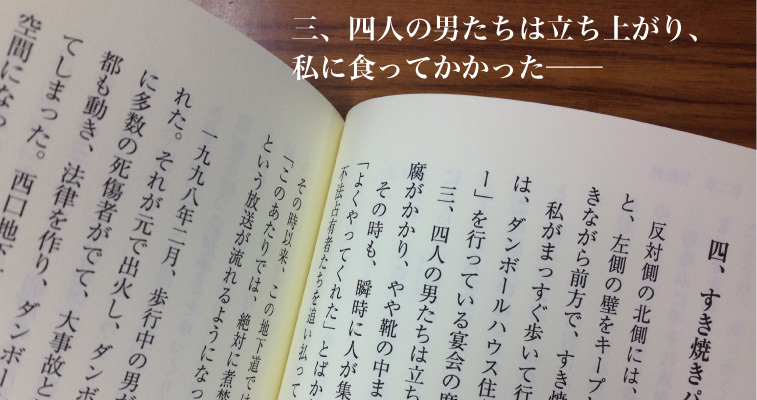 三、四人の男たちは立ち上がり、
私に食ってかかった──
四、すき焼きパ
反対側の北側には、
と、左側の壁をキープ
きながら前方で、すき焼
私がまっすぐ歩いて行
は、ダンボールハウス住
ー」を行っている宴会の席
三、四人の男たちは立ち
腐がかかり、やや靴の中ま
その時も、瞬時に人が集
「よくやってくれた」とばか
不法占有者たちを追い払って
その時以来、この地下道では
「このあたりでは、絶対に煮焚
という放送が流れるようになっ
一九九八年二月、歩行中の男が
れた。それが元で出火し、ダンボ
に多数の死傷者がでて、大事故と
都も動き、法律を作り、ダンボー
てしまった。西口地下
空間になっ